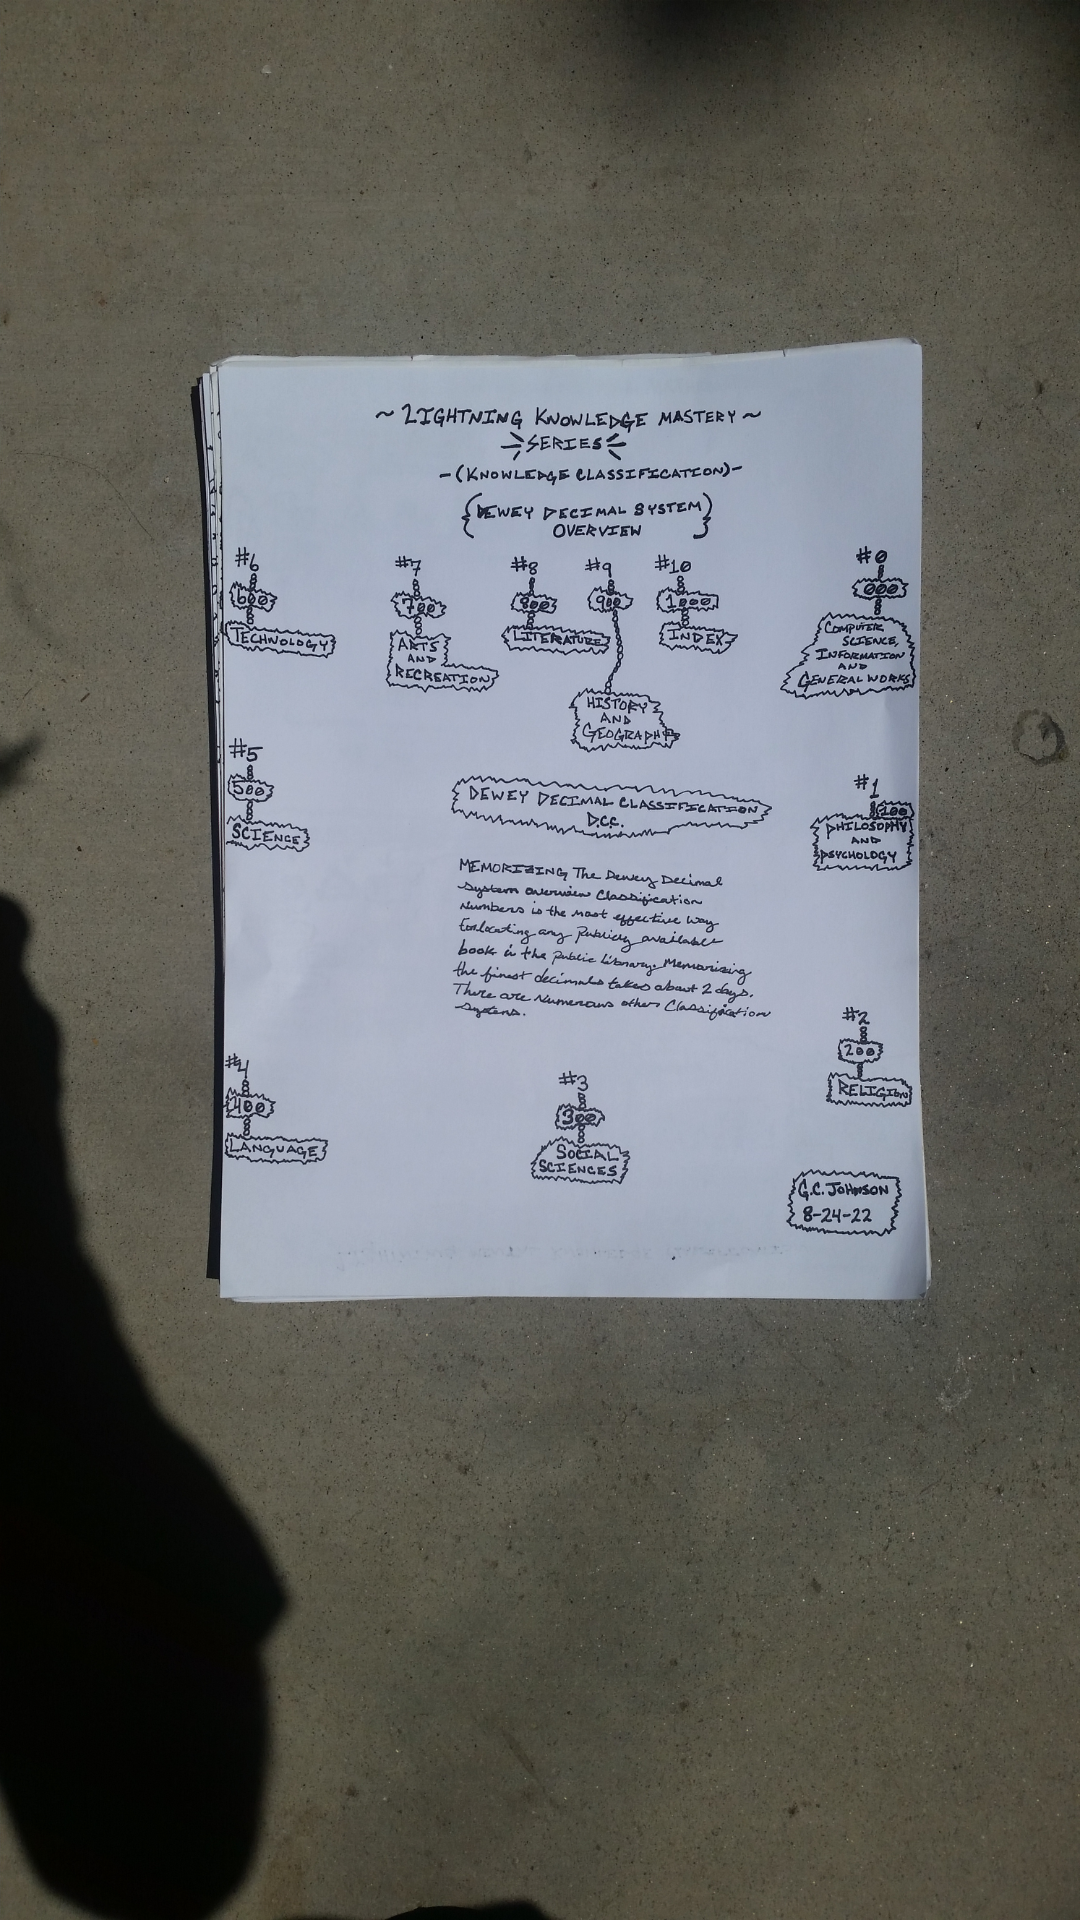 ~ LIGHTNING KNOWLEDGE MASTERY ~
SERIES
-(KNOWLEDGE CLASSIFICATION)-
{DEWEY DECIMAL SYSTEM
OVERVIEW}
#6
600
TECHNOLOGY
#7
700
ARTS
AND
RECREATION
#8
800
LITERATURE
#9
900
HISTORY
AND
GEOGRAPHY
#10
1000
INDEX
#0
000
COMPUTER
SCIENCE,
INFORMATION
AND
GENERAL WORKS
#5
500
SCIENCE
DEWEY DECIMAL CLASSIFICATION
D.C.C.
#1
100
PHILOSOPHY
AND
PSYCHOLOGY
MEMORIZING The Dewey Decimal
System overview Classification
Numbers is the most effective way
for locating any publicly available
book in the public Library. Memorizing
the finest decimals takes about 2 days.
There are Numerous others Classification
systems.
#2
200
RELIGION
#4
400
LANGUAGE
#3
300
SOCIAL
SCIENCES
G.C. JOHNSON
8-24-22